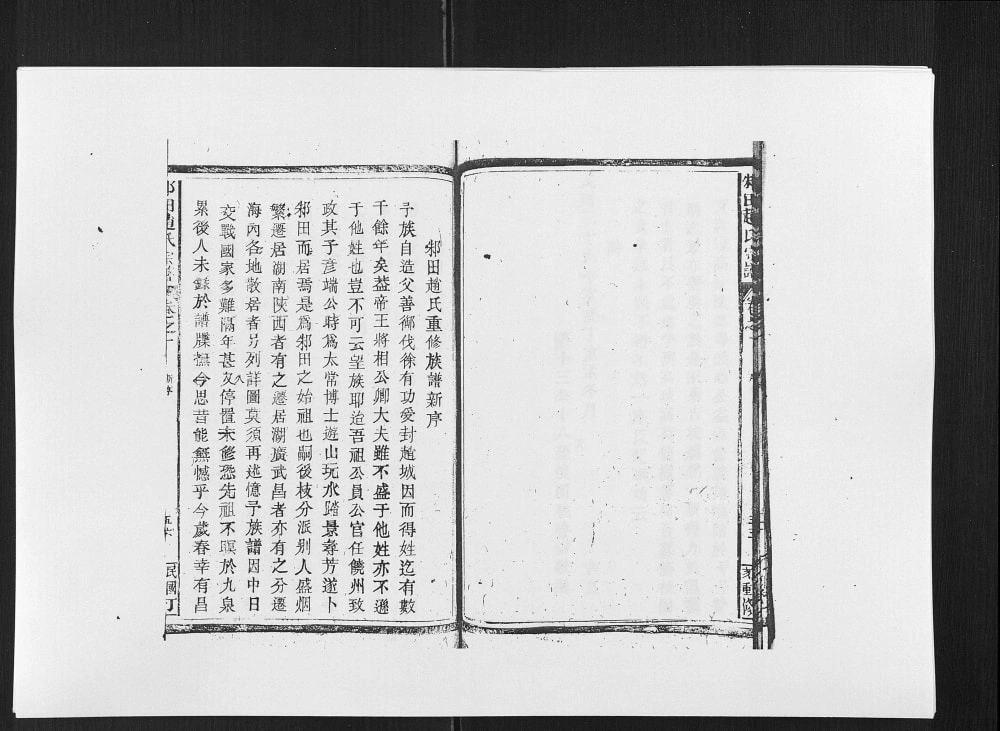 邾田趙氏宗譜
家重修
邾田趙氏重修族譜新序
予族自造父善御伐徐有功爰封趙城因而得姓迄有數
千餘年矣葢帝王將相公卿大夫雖不盛于他姓亦不遜
于他姓也豈不可云望族耶迨吾祖公員公官任饒州致
政其子彦端公時爲太常博士遊山玩水踏景尋芳遂卜
邾田而居焉是爲邾田之始祖也嗣後枝分派别人盛烟
繁遷居湖南陝西者有之遷居湖廣武昌者亦有之分遷
海內各地散居者另列詳圖莫須再述憶予族譜因中日
交戰國家多難隔年甚久停置未修恐先祖不瞑於九泉
累後人未録於譜牒撫今思昔能無憾乎今歲春幸有昌
邾田趙氏宗譜
卷之一
新序
民國丁